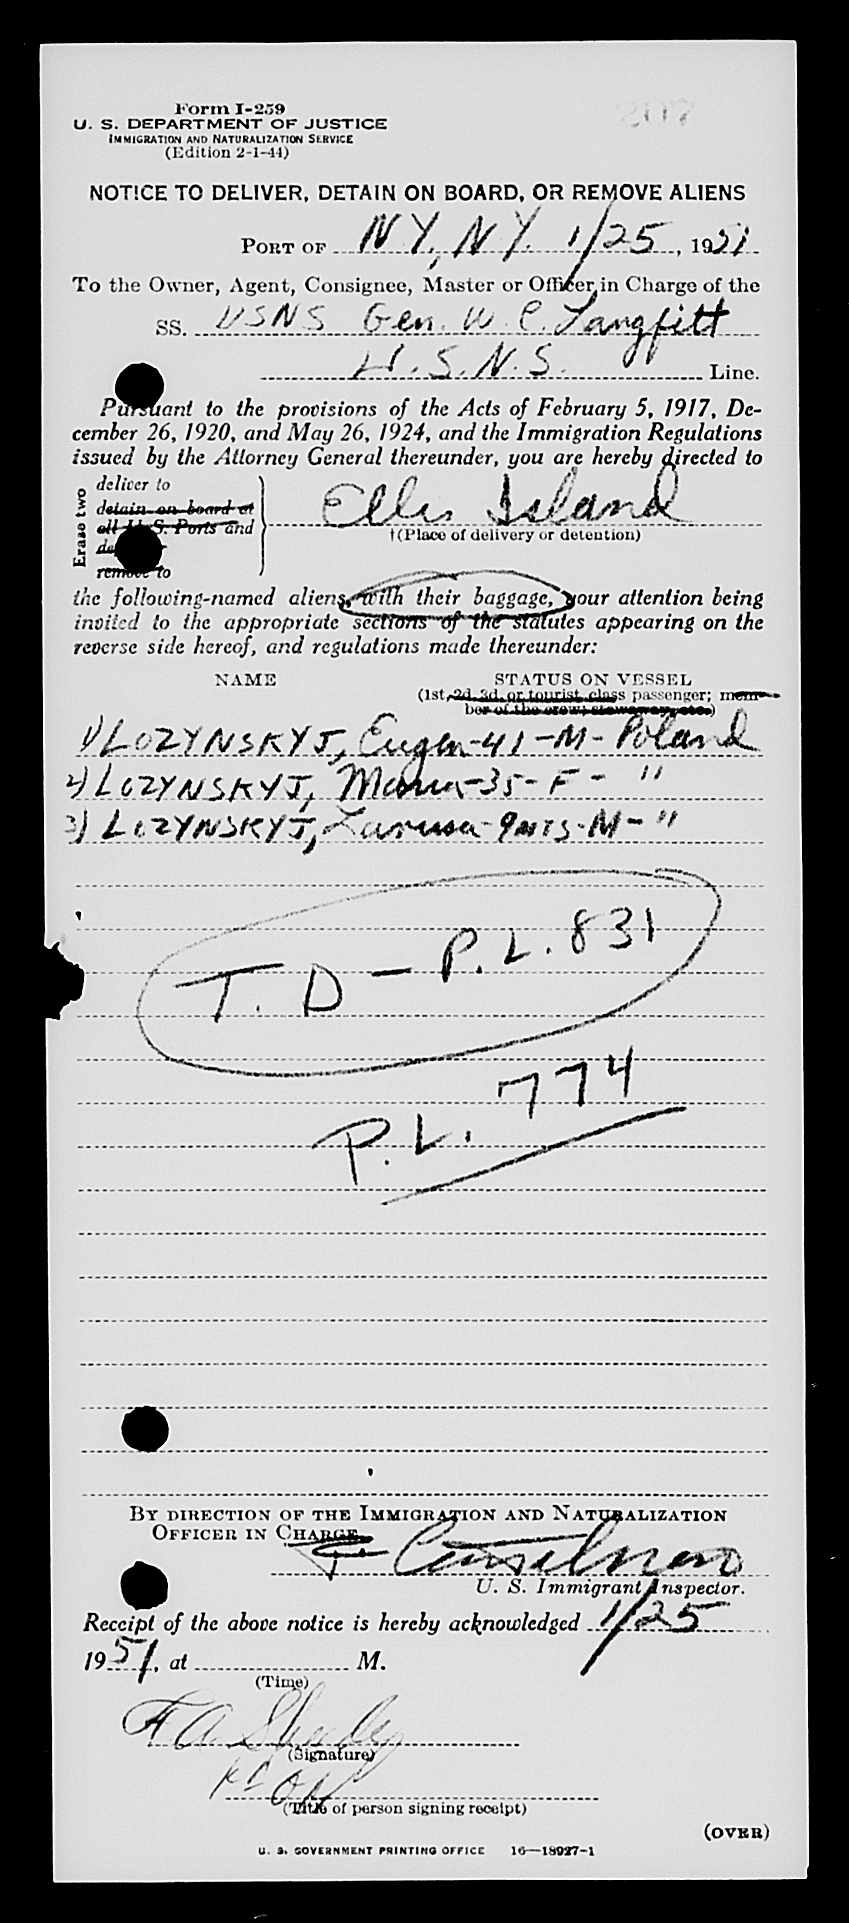 207
Form I-259
U. S. DEPARTMENT OF JUSTICE
IMMIGRATION AND NATURALIZATION SERVICE
(Edition 2-1-44)
NOTICE TO DELIVER, DETAIN ON BOARD, OR REMOVE ALIENS
PORT OF NY, NY. 1/25, 1951
To the Owner, Agent, Consignee, Master or Officer in Charge of the
SS. USNS Gen. W. C. Langfitt
U.S.N.S. Line.
Pursuant to the provisions of the Acts of February 5, 1917, De-
cember 26, 1920, and May 26, 1924, and the Immigration Regulations
issued by the Attorney General thereunder, you are hereby directed to
Erase two
deliver to
detain on board at
all U. S. Ports and
remove to
Ellis Island
†(Place of delivery or detention)
the following-named aliens, with their baggage, your attention being
invited to the appropriate sections of the statutes appearing on the
reverse side hereof, and regulations made thereunder:
NAME STATUS ON VESSEL
(1st, 2d, 3d, or tourist class passenger; mem-
ber of the crew; stowaway, etc.)
1) LOZYNSKYJ, Eugen-41-M-Poland
2) LOZYNSKYJ, Maria-35-F- "
3) LOZYNSKYJ, -9 -M- "
T.D - P.L. 831
P.L. 774
BY DIRECTION OF THE IMMIGRATION AND NATURALIZATION
OFFICER IN CHARGE
U. S. Immigrant Inspector.
Receipt of the above notice is hereby acknowledged 1/25
1951, at M.
(Time)
F A
(Signature)
(Title of person signing receipt)
(OVER)
U. S. GOVERNMENT PRINTING OFFICE 16—18927-1